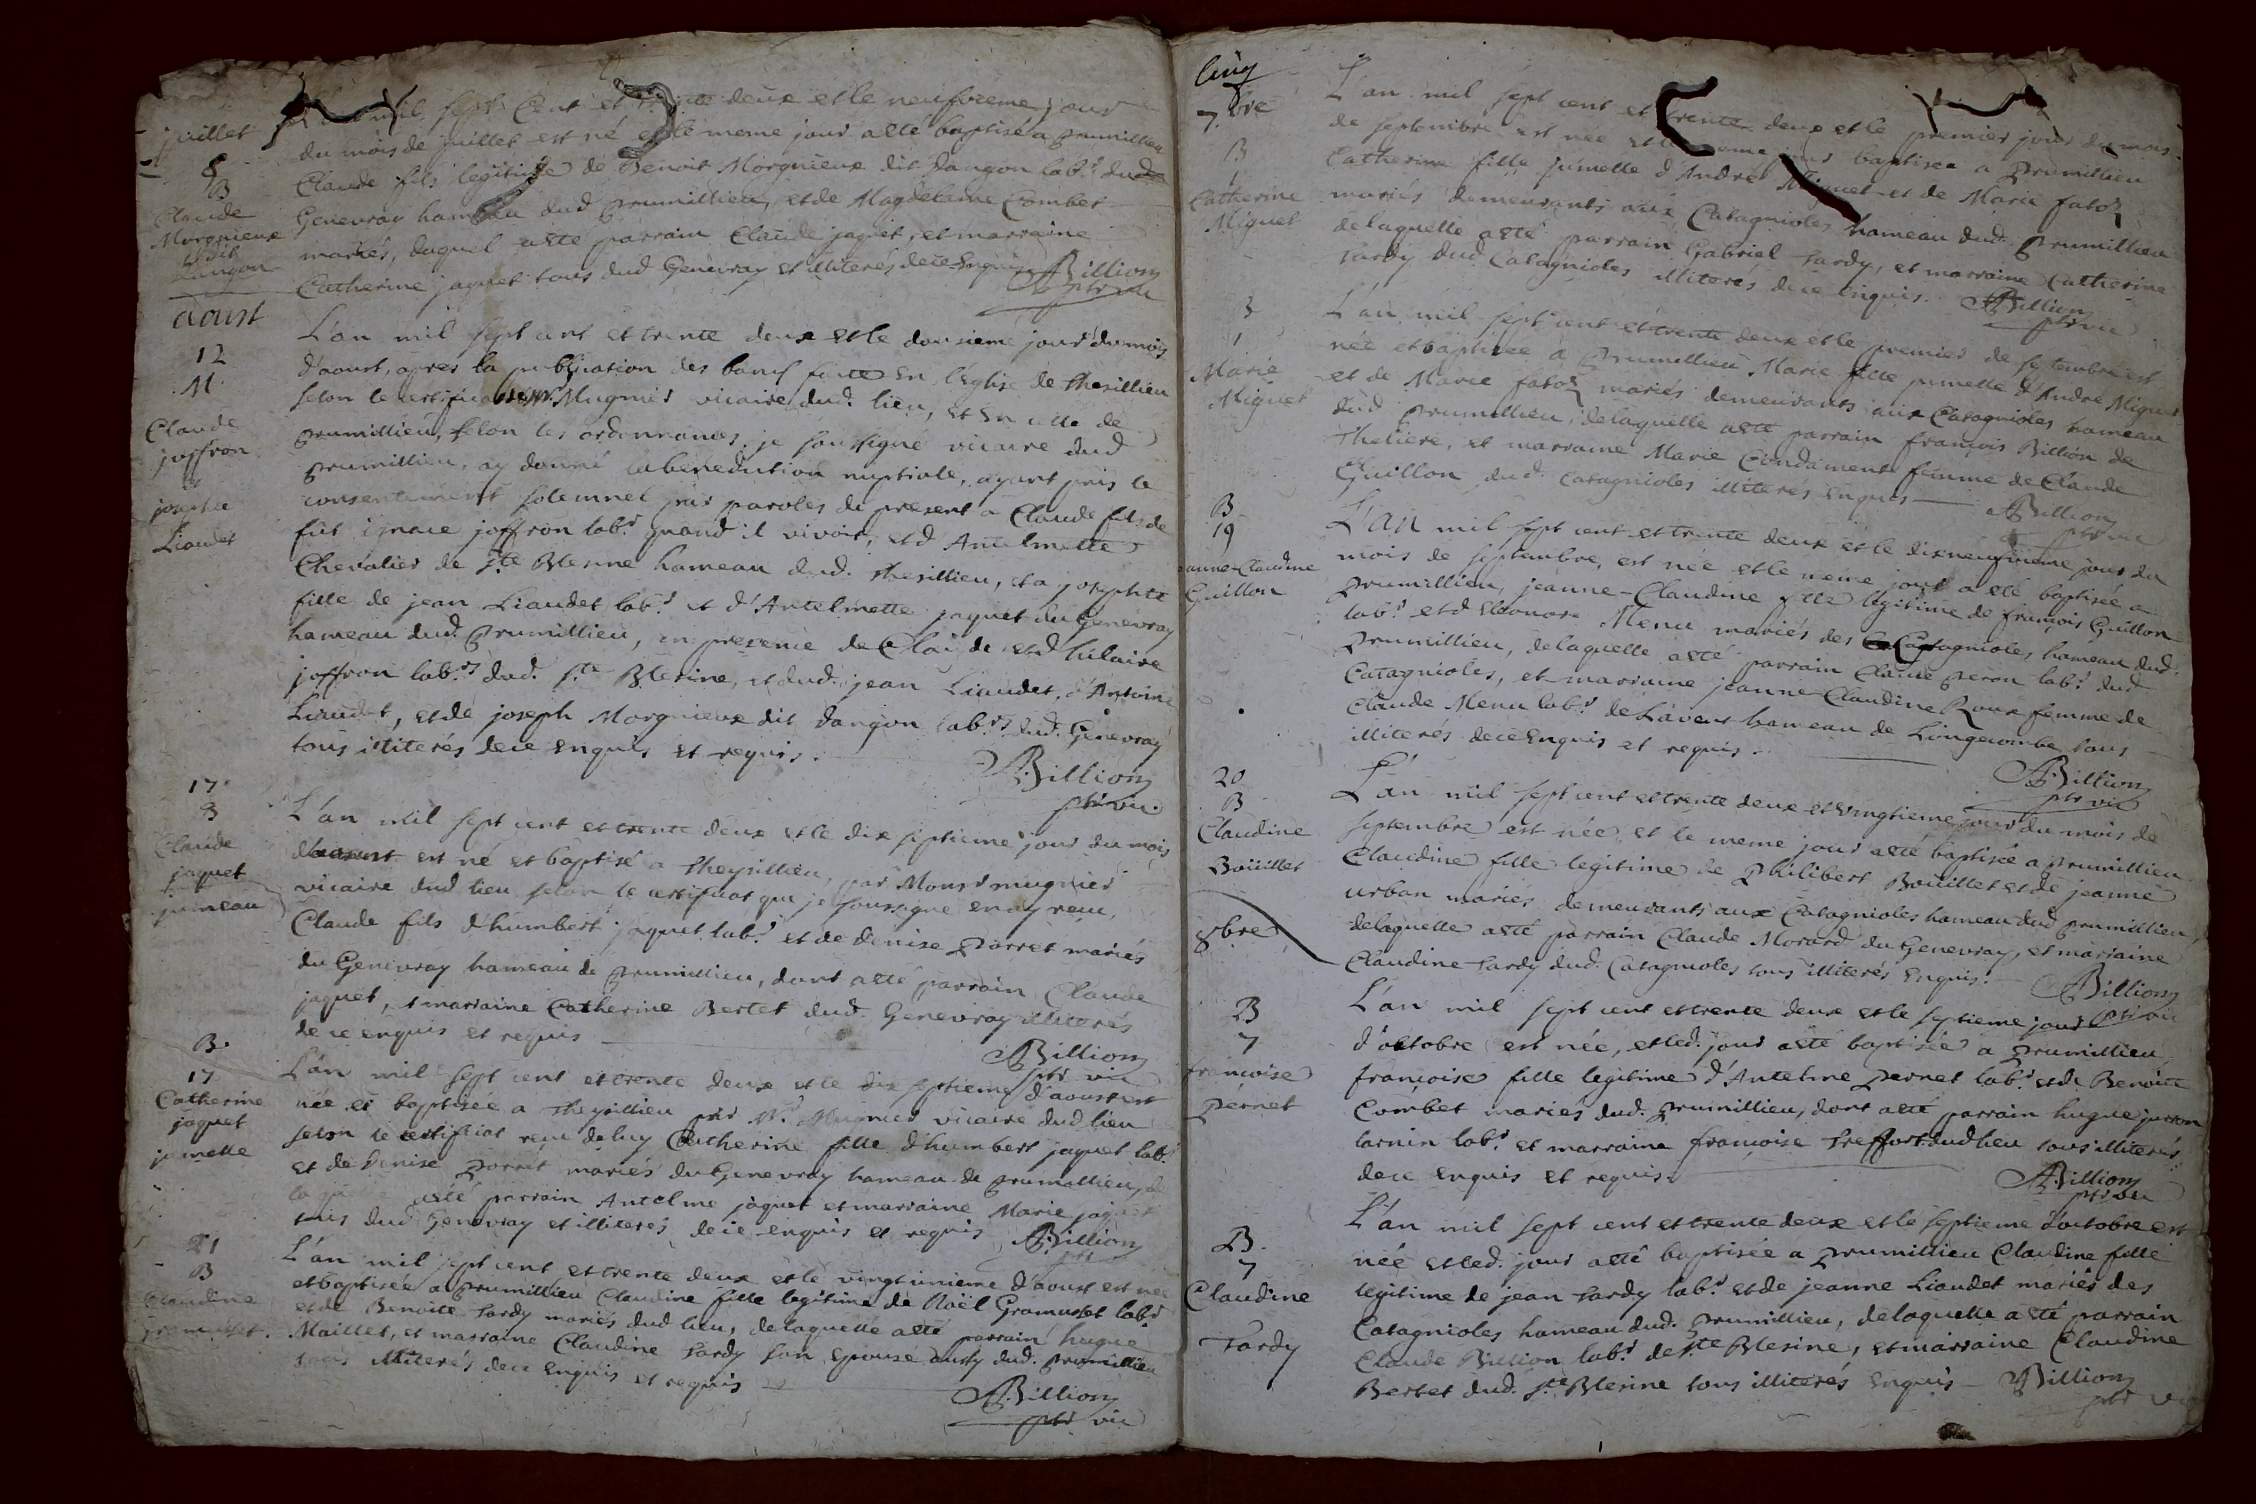 juillet
8
B
Claude
Morgnieux
dit
Dangon
mil sept Cent et trente deux et le neufvieme jour
du mois de juillet est né et le meme jour a été baptisé a prumillieu
Claude fils legitime de Benoit Morgnieux dit Dangon lab.r dud
Genevray hameau dud prumillieu, et de Magdelaine Combet
mariés, duquel a été parrain Claude jaquet, et marraine
Catherine jaquet tous dud Genevray et illiterés de ce enquis Billion
ptr vic
aoust
12
M
Claude
joffron
et
josephte
Liaudet
L'an mil sept cent et trente deux et le douzieme jour du mois
d'aoust, apres la publication des bans faite en l'Eglise de thesillieu
selon le certificat de Mr Mugnier vicaire dud. lieu, et en celle de
prumillieu, selon les ordonnances, je soussigné vicaire dud
prumillieu, ay donné la benediction nuptiale, ayant pris le
consentement solemnel par paroles de present a Claude fils de
fut ignace joffron lab.r quand il vivoit, et d'Antelmette
Chevalier de ste Blesine hameau dud. thesillieu, et a josephte
fille de jean Liaudet lab.r et d'Antelmette jaquet du Genevray
hameau dud. prumillieu, en presence de Claude et d'hilaire
joffron lab.rs dud. ste Blesine, et dud. jean Liaudet, d'Antoine
Liaudet, et de joseph Morgnieux dit Dangon lab.rs dud. Genevray
tous illiterés de ce enquis et requis.
Billion
ptr vic.
17
B
Claude
jaquet
jumeau
L'an mil sept cent et trente deux et le dix septieme jour du mois
d'aoust est né et baptisé a theysillieu, par Monsr mugnier
vicaire dud lieu selon le certificat que je soussigné en ay reçu,
Claude fils d'humbert jaquet lab.r et de Denise porret mariés
du Genevray hameau de prumillieu, dont a été parrain Claude
jaquet, et marraine Catherine Bertet dud. Genevray illiterés
de ce enquis et requis
Billion
ptr vic
B.
17
Catherine
jaquet
jumelle
L'an mil sept cent et trente deux et le dix septieme d'aoust est
née et baptisée a theysillieu par Mr Mugnier vicaire dud lieu
selon le certificat reçu de luy Catherine fille d'humbert jaquet lab.r
et de Denise porret mariés du Genevray hameau de prumillieu, de
a été parrain Antelme jaquet et marraine Marie jaquet
tous dud Genevray et illiterés de ce enquis et requis Billion
ptr
21
B
Claudine
gramusset.
L'an mil sept cent et trente deux et le vingt unieme d'aoust est née
et baptisée a prumillieu Claudine fille legitime de Noël Gramusset lab.r
et de Benoite tardy mariés dud lieu, de laquelle a été parrain hugue
Maillet, et marraine Claudine tardy son epouse dud. prumillieu
tous illiterés de ce enquis et requis
Billion
ptr vic
Cinq
7.bre
B
1
Catherine
Miguet
L'an mil sept cent et trente deux et le premier jour du mois
de septembre est née et le meme jour baptisée a prumillieu
Catherine fille jumelle d'André Miguet et de Marie fatoz
mariés demeurants aux Catagnioles hameau dud prumillieu
de laquelle a été parrain Gabriel tardy, et marraine Catherine
tardy dud Catagnioles illiterés de ce enquis. Billion
ptr vic
B
1
Marie
Miguet
L'an mil sept cent et trente deux et le premier de septembre est
née et baptisée a prumillieu Marie fille jumelle d'André Miguet
et de Marie fatoz mariés demeurants aux Catagnioles hameau
dud prumillieu, de laquelle a été parrain françois Billion de
theliere, et marraine Marie Condament femme de Claude
Guillon dud. Catagnioles illiterés enquis
Billion
ptr vic
B
19
anne-Claudine
Guillon
L'an mil sept cent et trente deux et le dixneufvieme jour du
mois de septembre, est née et le meme jour a été baptisée a
prumillieu, jeanne-Claudine fille legitime de françois Guillon
lab.r et d'Eleonore Menu mariés des Catagnioles, hameau dud.
prumillieu, de laquelle a été parrain Claude peron lab.r dud
Catagnioles, et marraine jeanne-Claudine Roux femme de
Claude Menu lab.r de Lavent hameau de Longecombe tous
illiterés de ce enquis et requis.
Billion
ptr vic
20
B
Claudine
Boüillet
L'an mil sept cent et trente deux et vingtieme jour du mois de
septembre est née, et le meme jour a été baptisée a prumillieu
Claudine fille legitime de Philibert Boüillet et de jeanne
urban mariés demeurants aux Catagnioles hameau dud prumillieu,
de laquelle a été parrain Claude Morard du Genevray, et marraine
Claudine tardy dud. Catagnioles tous illiterés enquis. Billion
ptr vic
8bre
B
7
françoise
pernet
L'an mil sept cent et trente deux et le septieme jour
d'octobre est née, et led. jour a été baptisée a prumillieu
françoise fille legitime d'Antelme pernet lab.r et de Benoite
Combet mariés dud. prumillieu, dont a été parrain hugue jurron
lab.r et marraine françoise treffort dud lieu tous illiterés
de ce enquis et requis
Billion
ptr vic
B.
7
Claudine
Tardy
L'an mil sept cent et trente deux et le septieme d'octobre est
née et led. jour a été baptisée a prumillieu Claudine fille
legitime de jean tardy lab.r et de jeanne Liaudet mariés des
Catagnioles hameau dud. prumillieu, de laquelle a été parrain
Claude Billion lab.r de ste Blesine, et marraine Claudine
Bertet dud. ste Blesine tous illiterés enquis Billion
ptr vic